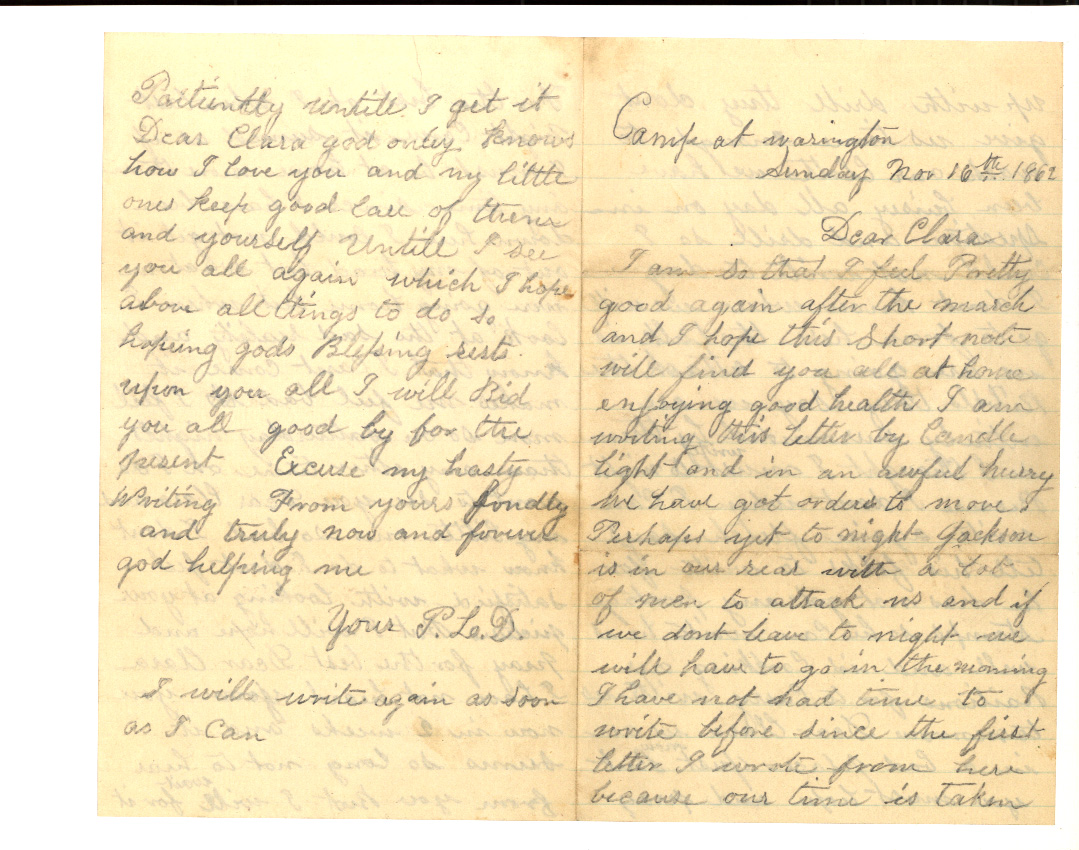 Camp at warington
Sunday Nov 16th 1862
Dear Clara
I am so that I feel Pretty
good again after the march
and I hope this Short note
will find you all at home
enjoying good health I am
writing this letter by Candle
light and in an awful hurry
we have got orders to move
Perhaps yet to night Jackson
is in our rear with a lot
of men to attack us and if
we dont leave to night we
will have to go in the morning
I have not had time to
write before since the first
letter I wrote from here
because our time is taken
Patiently untill I get it
Dear Clara god only knows
how I love you and my little
ones keep good care of them
and yourself Untill I see
you all again which I hope
above all things to do so
hopeing gods Blessing rests
upon you all I will Bid
you all good by for the
present Excuse my hasty
Writing From yours fondly
and truly now and forever
god helping me
Your P. Le. D.
I will write again as soon
as I Can